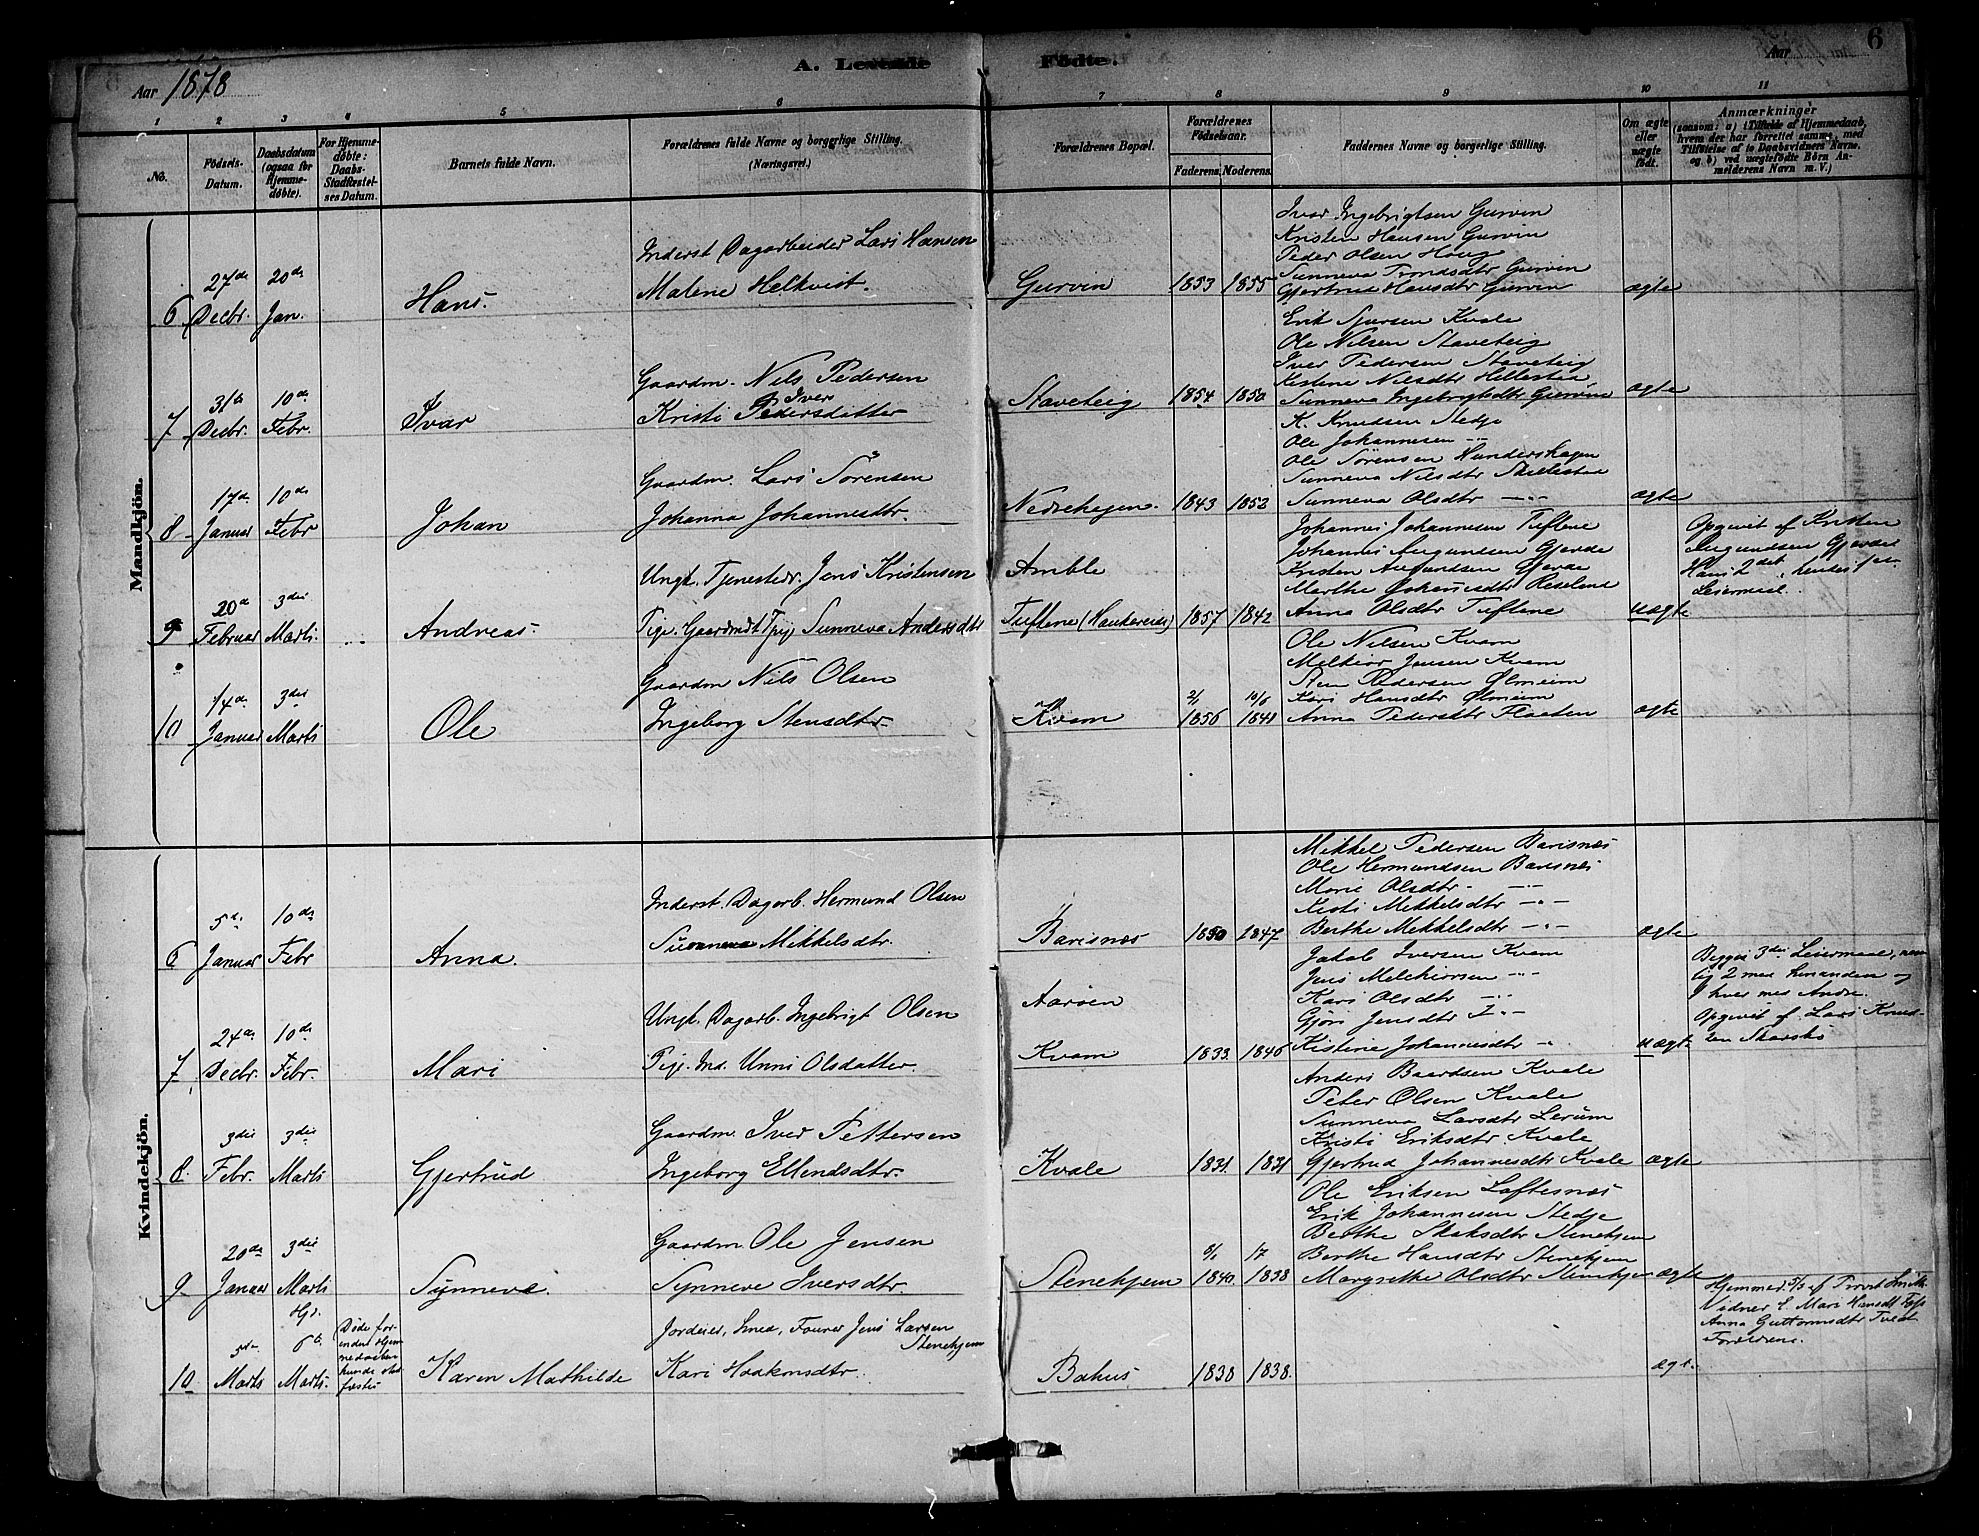 6
Aar 1878
A. Levende Födte.
Aar
1 2 3 4 5 6 7 8 9 10 11
No.
Födsels-Datum.
Daabsdatum (ogsaa for Hjemmedöbte).
For Hjemmedöbte: Daabs-Stadfæstelses Datum.
Barnets fulde Navn.
Forældrenes fulde Navne og borgerlige Stilling. (Næringsvei.)
Forældrenes Bopæl.
Forældrenes Födselsaar.
Faderens. Moderens.
Faddernes Navne og borgerlige Stilling.
Om ægte eller uægte födt.
Anmærkninger
(saasom: a) i Tilfælde af Hjemmedaab, hvem der har forrettet samme, med Tilföielse af to Daabsvidners Navne. og b) ved uægtefödte Börn Anmelderens Navn m. V.)
Mandkjön.
Ivar Ingebrigtsen Gurvin
Kristen Hansen Gurvin
Inderst Dagarbeider Lars Hansen
Peder Olsen Houg
27de 20de
Sunneva Trondsdtr Gurvin
Malene Helkvist. Gurvin 1853 1855 Gjertrud Hansdtr Gurvin ægte
6 Decbr. Jan. Hans.
Erik Sjursen Kvale
Ole Nilsen Staveteig
Iver Pedersen Staveteig
Gaardm. Nils Pedersen
31te 10de
Kristi Iversdatter Staveteig 1854 1850 Sunneva Ingebrigtsdtr Gurvin ægte
7 Decbr. Febr. Ivar
K. Knudsen Stedje
Ole Johannesen -"-
Gaardm. Lars Sörensen
Ole Sörensen Hundershagen
17de 10de
Johanna Johannesdtr. Nedrehagen. 1843 1852 Sunneva Olsdtr -"- ægte
8 Januar Febr Johan
Johannes Johannesen Tuftene
Opgivet af Kristen
Johannes Augundsen Gjerde
Augundsen Gjerde
Ungk. Tjenestedr. Jens Kristensen Amble
Kristen Augundsen Gjerde
Hans 2det, hendes 1ste
Leiermaal.
20de 3die
Marthe Johannesdtr Reseland
Sunneva Andersdtr Tuftene 1857 1842 Anna Olsdtr Tuftene uægte
9 Februar Marts. Andreas.
Ole Nilsen Kvam
Melkior Jensen Kvam
Gaardm Nils Olsen
Sten Pedersen Ølmeim
14de 3die
2/1 10/6
Kari Hansdtr Ølmeim
Ingeborg Stensdtr. Kvam 1856 1848 Anna Pedersdtr Flaaten ægte
10 Januar Marts Ole
Kvindekjön.
Mikkel Pedersen Barisnæs
Ole Hermundsen Barisnæs
Inderst. Dagarb. Hermund Olsen
Marie Olsdtr. -"-
5te 10de
Kisti Mikkelsdtr -"-
Sunneva Mikkelsdtr. Barisnæs 1850 1847 Berthe Mikkelsdtr -"- ægte
6 Januar Febr Anna.
Jakob Iversen Kvam
Begges 3die Leiermaal, nem-
Jens Melchiorsen -"-
lig 2 med hinanden og
Ungk. Dagarb. Ingebrigt Olsen Aaröen
Kari Olsdtr -"-
1 hver med Andre.
24de 10de
Gjöri Jensdtr -"-
Opgivet af Lars Knud-
Pige. Ind. Unni Olsdatter. Kvam 1833. 1846 Kistine Johannesdtr -"- uægte
sen Skarsbö
7 Decbr. Febr. Mari
Anders Baardsen Kvale
Peter Olsen Kvale
Gaardm. Iver Pettersen
Sunneva Larsdtr Lerum
3die 3die
Kristi Eriksdtr Kvale
Ingeborg Ellendsdtr. Kvale 1831. 1831 Gjertrud Johannesdtr Kvale ægte
8. Febr. Marts Gjertrud
Ole Eriksen Loftesnæs
Erik Johannesen Stedje
Gaardm. Ole Jensen
Berthe Skaksdtr Stenehjem
20de 3die
8/1 17
Berthe Hansdtr Stenehjem
Synneve Iversdtr. Stenehjem 1840. 1838 Margrethe Olsdtr Stenehjem ægte
9 Januar Marts Synneve.
Hjemmed. 5/3 af
Vidner E. Mari Hansdt
Anna Guttormsdtr
Forældrene.
Hj.
Döde forinden Hjemmedaaben kunde stadfæstes
Jordeier, Smed, Fourer Jens Larsen Stenehjem
5te 6te
Kari Haakonsdtr. Bahus 1838 1838. ægt.
10 Marts Marts. Karen Mathilde